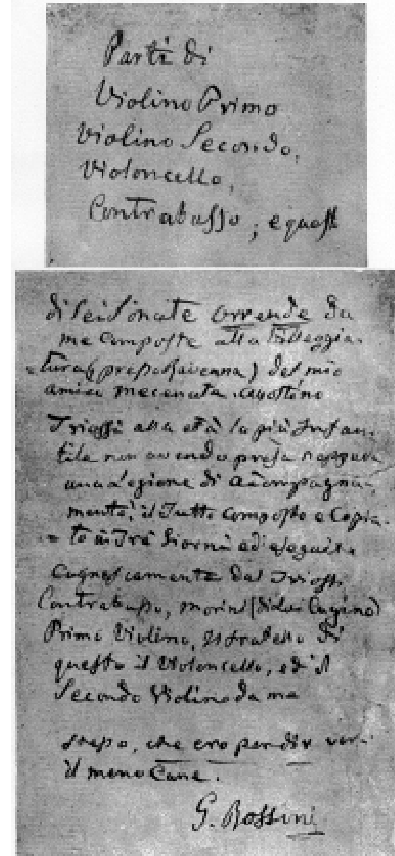 Parti di
Violino Primo
Violino Secondo,
Violoncello,
Contrabasso, e questi
di sei Sonate orrende da
me composte alla Villeggia-
tura (presso Ravenna) del mio
amico mecenate Agostino
Triossi alla età la più infan-
tile non avendo presa neppure
una Lezione di accompagna-
mento, il Tutto composto e Copia-
to in Tre Giorni ed eseguito
Cagnescamente dal Triossi
Contrabasso, Morini (di lui Cugino)
Primo Violino, il fratello di
questo il Violoncello, ed il
Secondo Violino da me
stesso, che ero per dir vero
il meno Cane.
G. Rossini